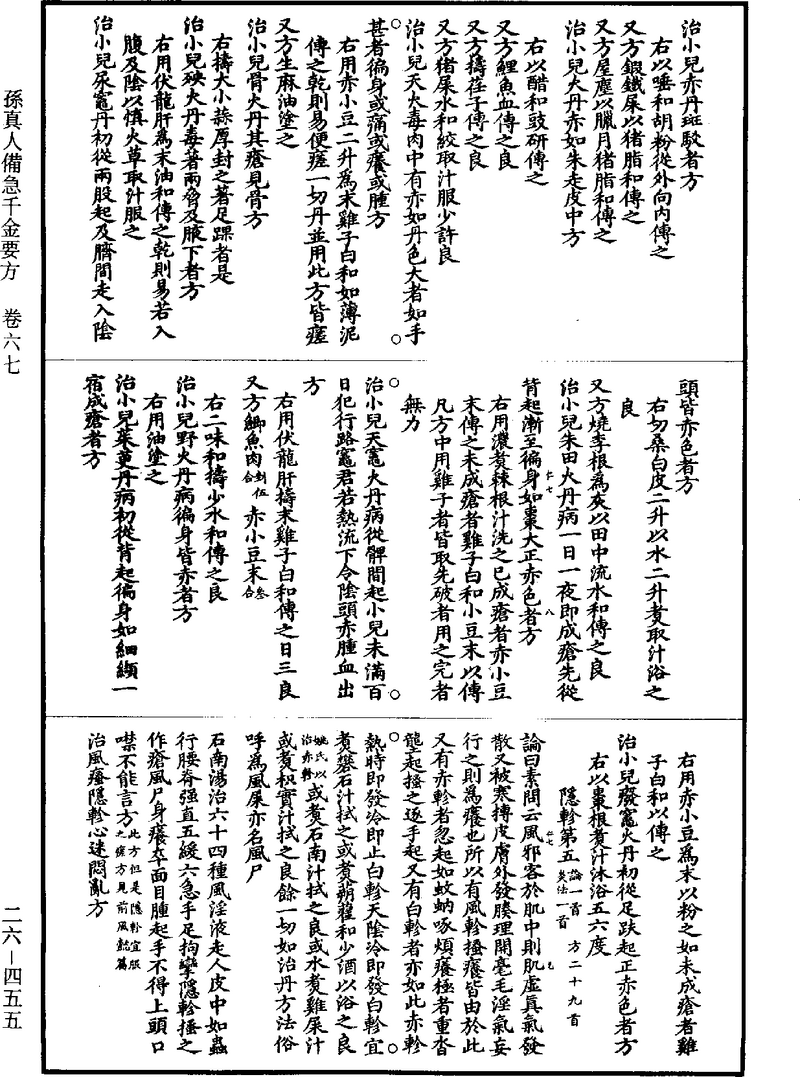 孫真人備急千金要方　卷六七
二六－四五五
治小兒赤丹斑駁者方
右以唾和胡粉從外向內傅之
又方鍛鐵屎以猪脂和傅之
又方屋塵以臘月猪脂和傅之
治小兒火丹赤如朱走皮中方
右以醋和豉研傅之
又方鯉魚血傅之良
又方擣荏子傅之良
又方猪屎水和絞取汁服少許良
治小兒天火毒肉中有赤如丹色大者如手
甚者徧身或痛或癢或腫方
右用赤小豆二升爲末雞子白和如薄泥
傅之乾則易便瘥一切丹並用此方皆瘥
又方生麻油塗之
治小兒骨火丹其瘡見骨方
右擣大小蒜厚封之著足踝者是
治小兒殃火丹毒著兩脅及腋下者方
右用伏龍肝爲末油和傅之乾則易若入
腹及陰以慎火草取汁服之
治小兒尿竈丹初從兩股起及臍間走入陰
頭皆赤色者方
右切桑白皮二升以水二升煮取汁浴之
良
又方燒李根爲灰以田中流水和傅之良
治小兒朱田火丹病一日一夜即成瘡先從
背起漸至徧身如棗大正赤色者方
右用濃煮棘根汁洗之已成瘡者赤小豆
末傅之未成瘡者雞子白和小豆末以傅
凡方中用雞子者皆取先破者用之完者
無力
治小兒天竈火丹病從髀間起小兒未滿百
日犯行路竈君若熱流下令陰頭赤腫血出
方
右用伏龍肝擣末雞子白和傅之日三良
又方鯽魚肉剉伍合　赤小豆末叁合
右二味和擣少水和傅之良
治小兒野火丹病徧身皆赤者方
右用油塗之
治小兒茱萸丹病初從背起徧身如細纈一
宿成瘡者方
右用赤小豆爲末以粉之如未成瘡者雞
子白和以傅之
治小兒廢竈火丹初從足趺起正赤色者方
右以棗根煮汁沐浴五六度
隱軫第五論一首　方二十九首　灸法一首
論曰素問云風邪客於肌中則肌虛真氣發
散又被寒搏皮膚外發腠理開毫毛淫氣妄
行之則爲癢也所以有風軫搔癢皆由於此
又有赤軫者忽起如蚊蚋啄煩癢極者重沓
壟起搔之逐手起又有白軫者亦如此赤軫
熱時即發冷即止白軫天陰冷即發白軫宜
煮礬石汁拭之或煮蒴藋和少酒以浴之良
姚氏以治赤軫或煮石南汁拭之良或水煮雞屎汁
或煮枳實汁拭之良餘一切如治丹方法俗
呼爲風屎亦名風尸
石南湯治六十四種風淫液走人皮中如蟲
行腰脊强直五緩六急手足拘攣隱軫搔之
作瘡風尸身癢卒面目腫起手不得上頭口
噤不能言方此方但是隱軫宜服之瘥方見前風懿篇
治風瘙隱軫心迷悶亂方